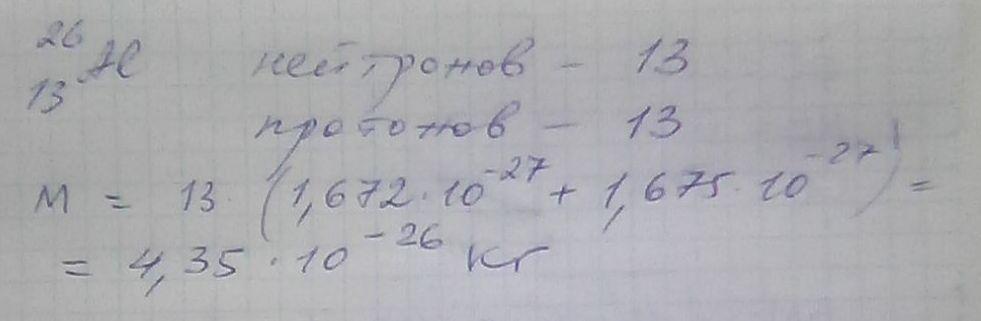 ²⁶₁₃Al нейтронов - 13
протонов - 13
M = 13 · (1,672 · 10⁻²⁷ + 1,675 · 10⁻²⁷) =
= 4,35 · 10⁻²⁶ кг